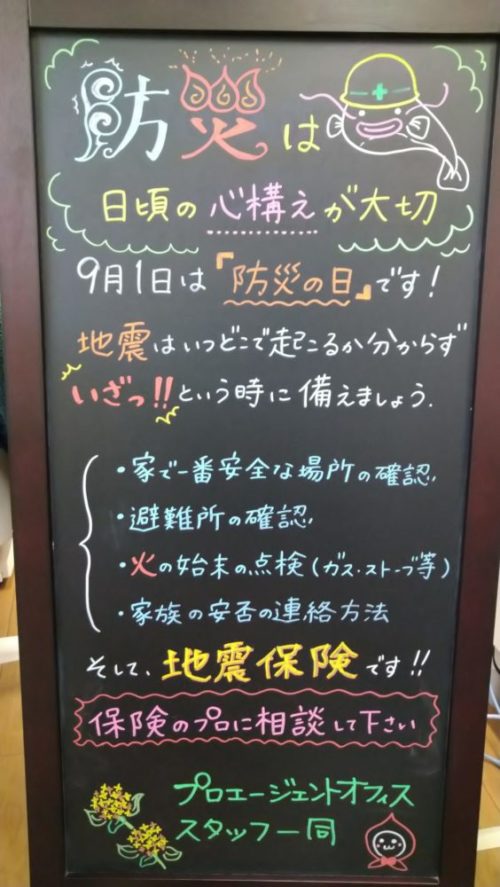 防災は
日頃の心構えが大切
9月1日は『防災の日』です!
地震はいつどこで起こるか分からず
いざっ!!という時に備えましょう.
・家で一番安全な場所の確認
・避難所の確認
・火の始末の点検(ガス・ストーブ等)
・家族の安否の連絡方法
そして、地震保険です!!
保険のプロに相談して下さい
プロエージェントオフィス
スタッフ一同